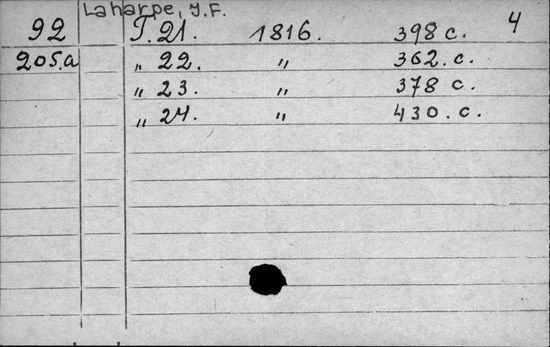 Laharpe, J.F.
4
92 Т. 21. 1816. 398 с.
205.а „ 22. „ 362. с.
„ 23. „ 378 с.
„ 24. „ 430. с.